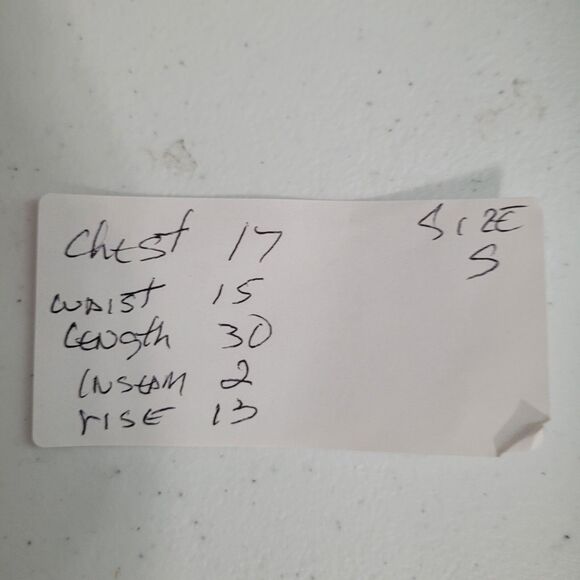 Chest 17
SIZE
S
WAIST 15
LENgth 30
INSEAM 2
rISE 13